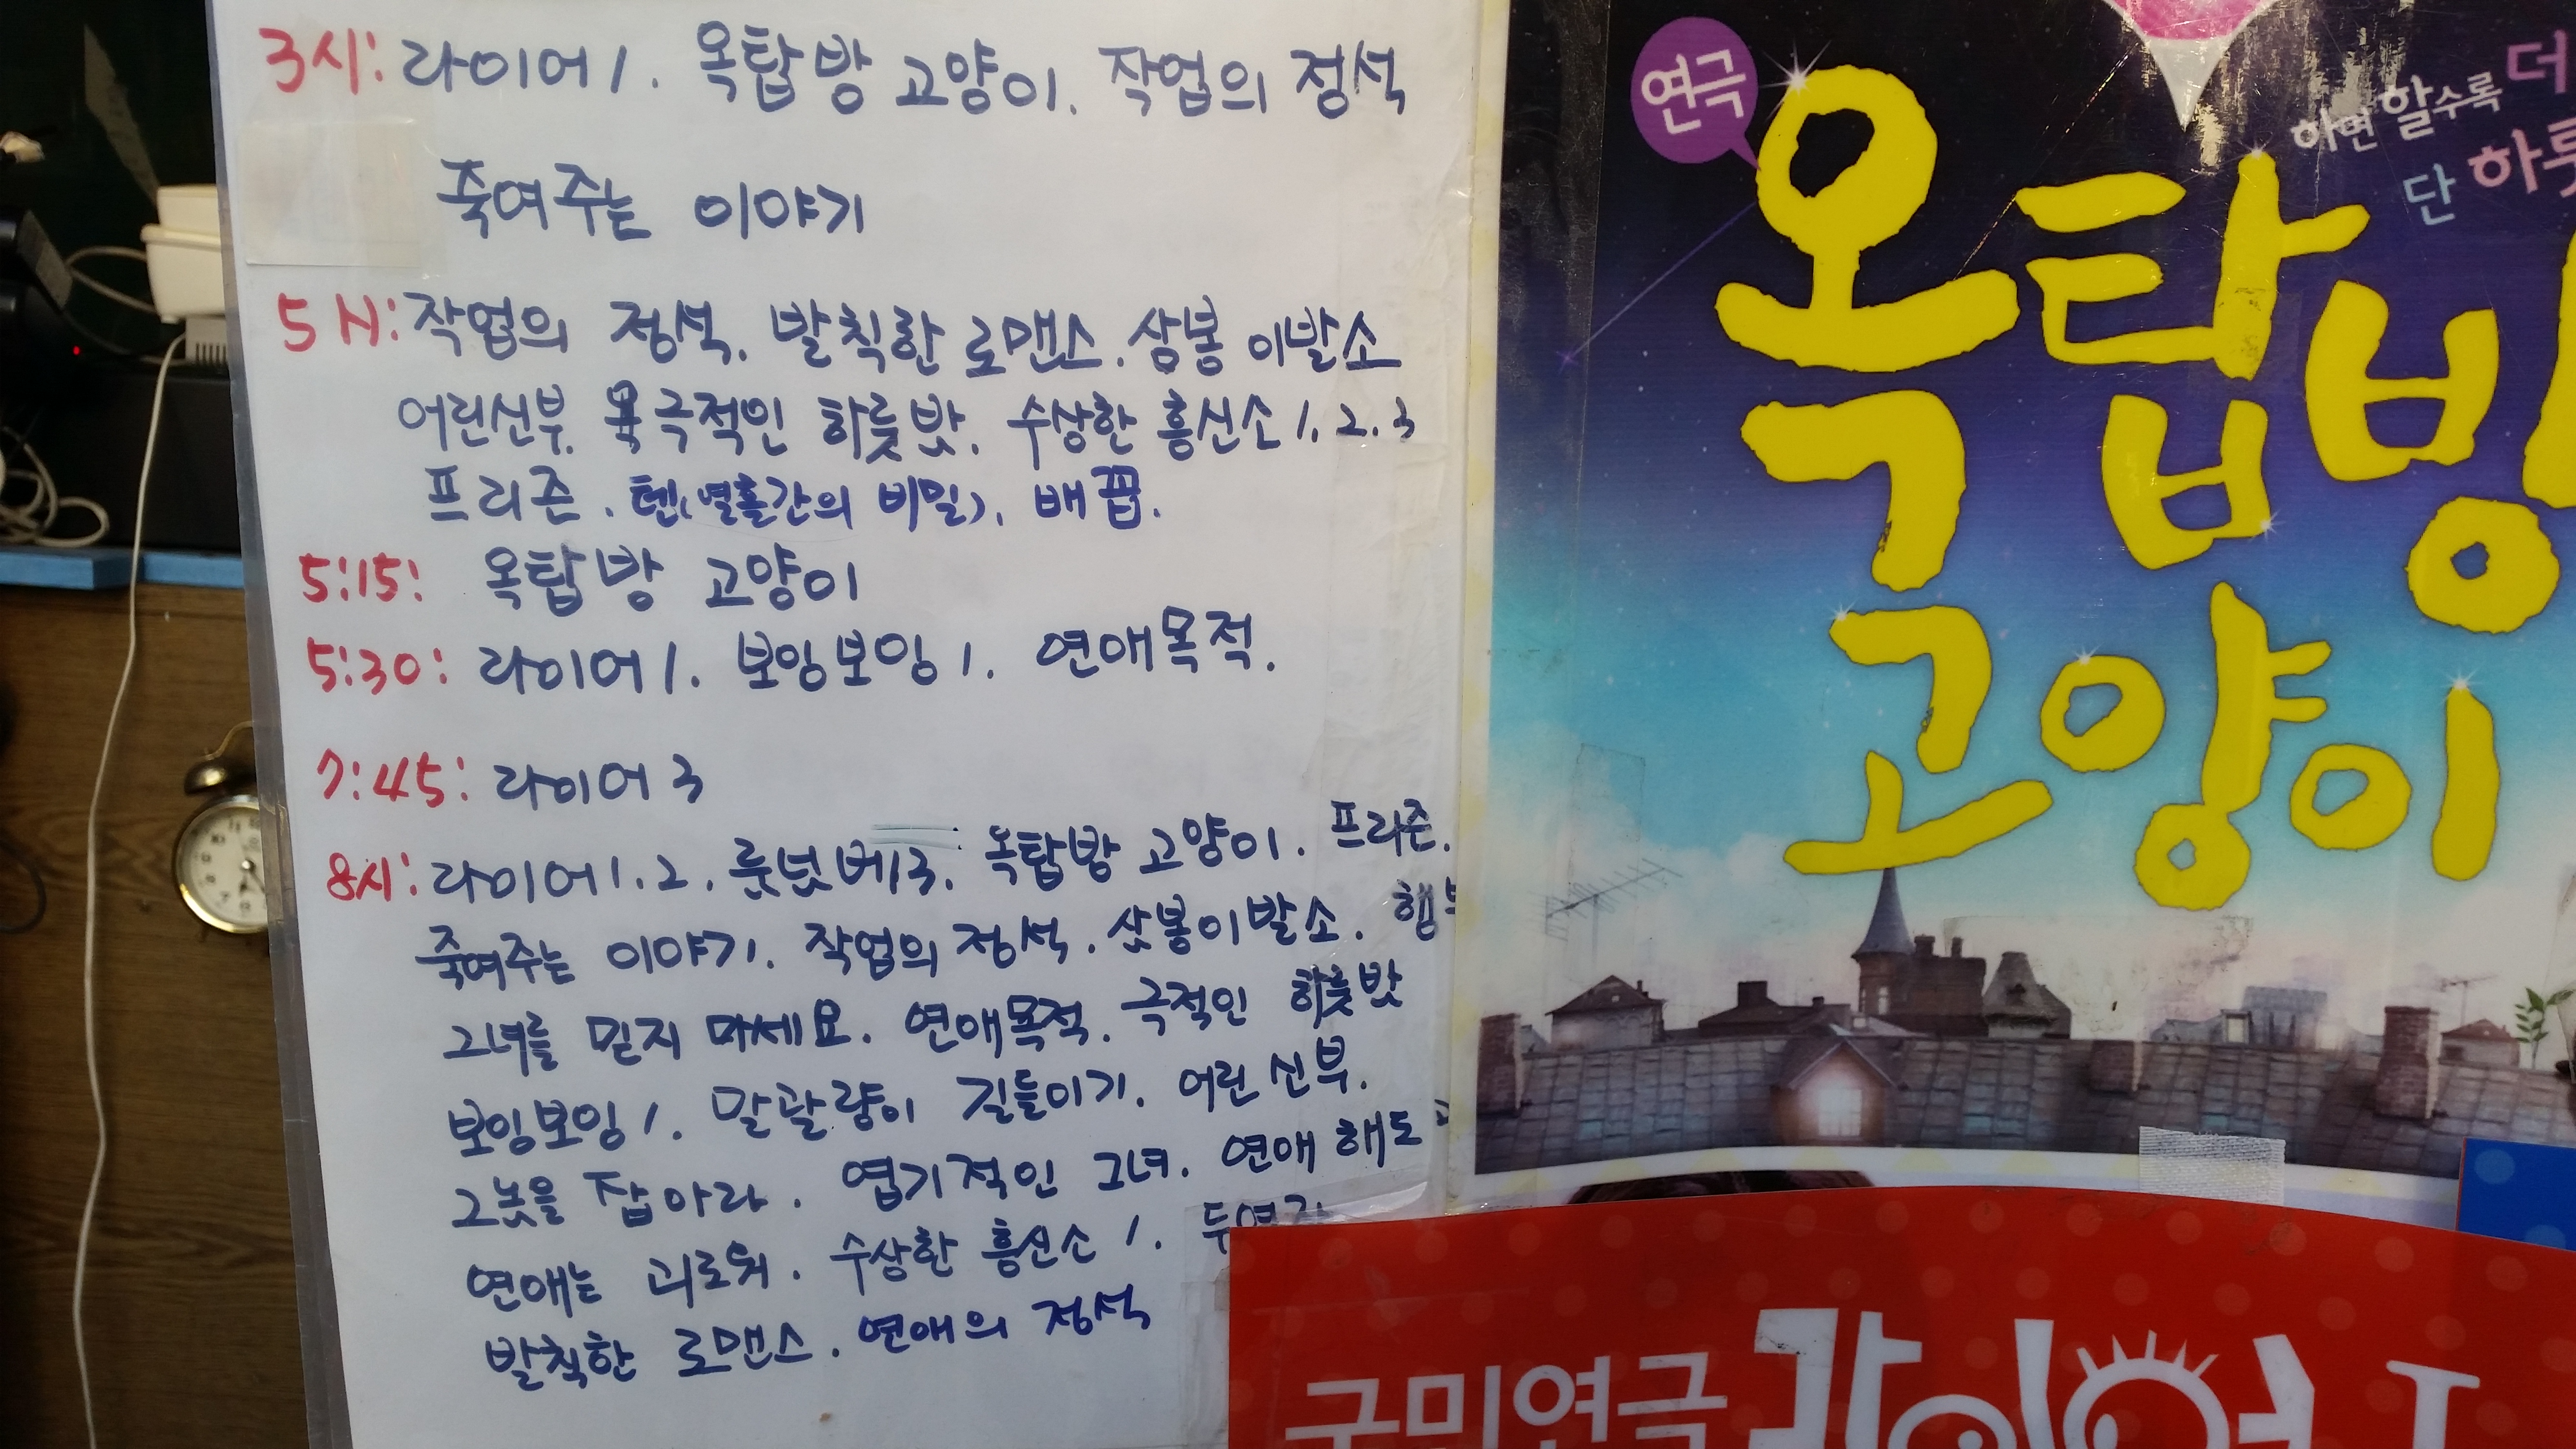 3시: 라이어 1. 옥탑방 고양이. 작업의 정석
죽여주는 이야기
5시: 작업의 정석. 발칙한 로맨스. 삼봉 이발소
어린신부. 극적인 하룻밤. 수상한 흥신소 1. 2. 3
프리즌. 텐(열흘간의 비밀). 배꼽.
5:15: 옥탑방 고양이
5:30: 라이어 1. 보잉보잉 1. 연애목적.
7:45: 라이어 3
8시: 라이어 1. 2. 룸넘버13. 옥탑방 고양이. 프리즌.
죽여주는 이야기. 작업의 정석. 삼봉이발소.
그녀를 믿지 마세요. 연애목적. 극적인 하룻밤
보잉보잉 1. 말괄량이 길들이기. 어린신부.
그놈을 잡아라. 엽기적인 그녀. 연애 해도
연애는 괴로워. 수상한 흥신소 1.
발칙한 로맨스. 연애의 정석
연극
옥탑방
고양이
하면 할수록 더
단
국민연극 라이어